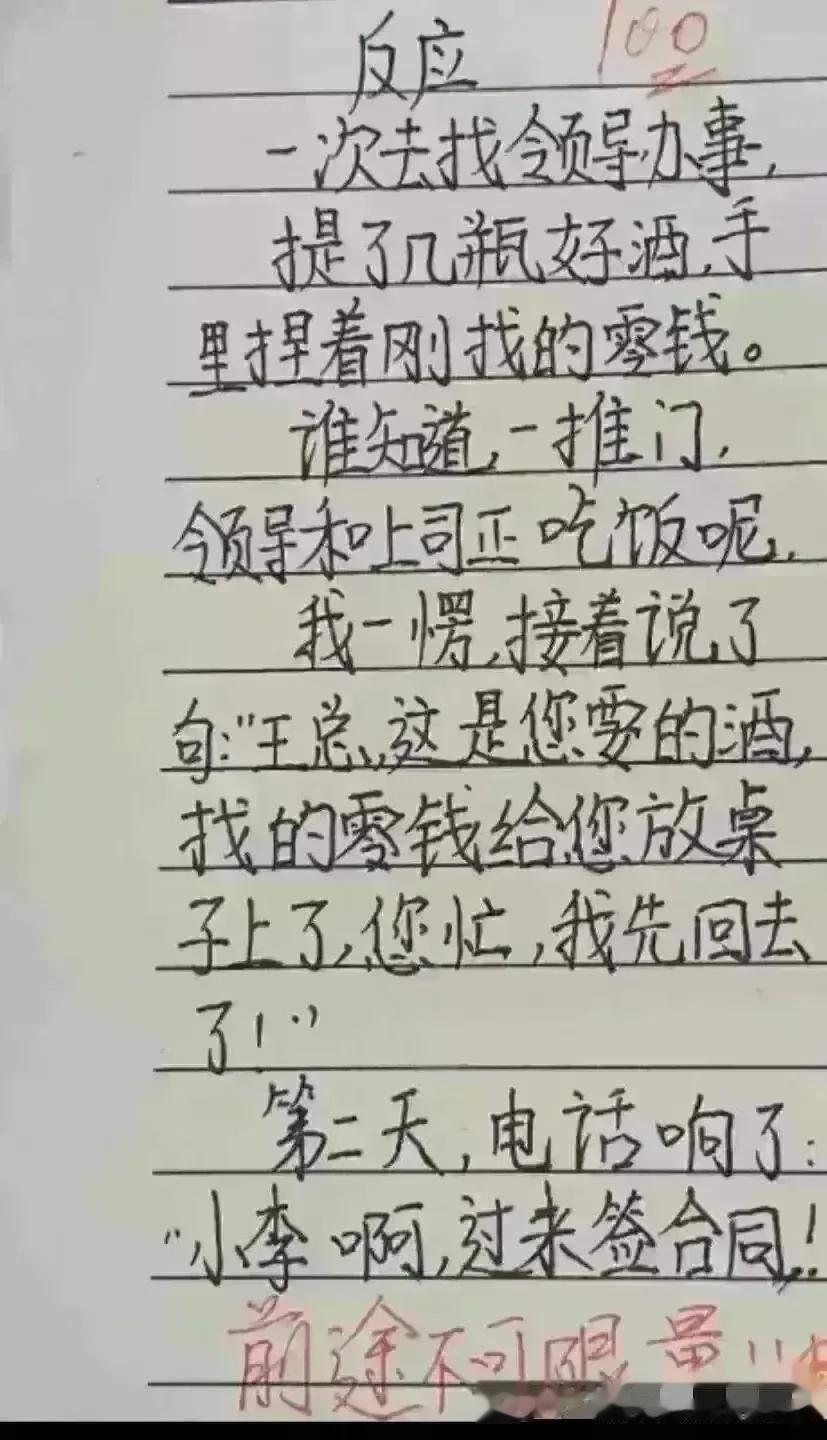 反应
100
一次去找领导办事,
提了几瓶好酒,手
里捏着刚找的零钱。
谁知道,一推门,
领导和上司正吃饭呢,
我一愣,接着说了
句:"王总,这是您要的酒,
找的零钱给您放桌
子上了,您忙,我先回去
了!"
第二天,电话响了:
"小李啊,过来签合同,!
前途不可限量!!